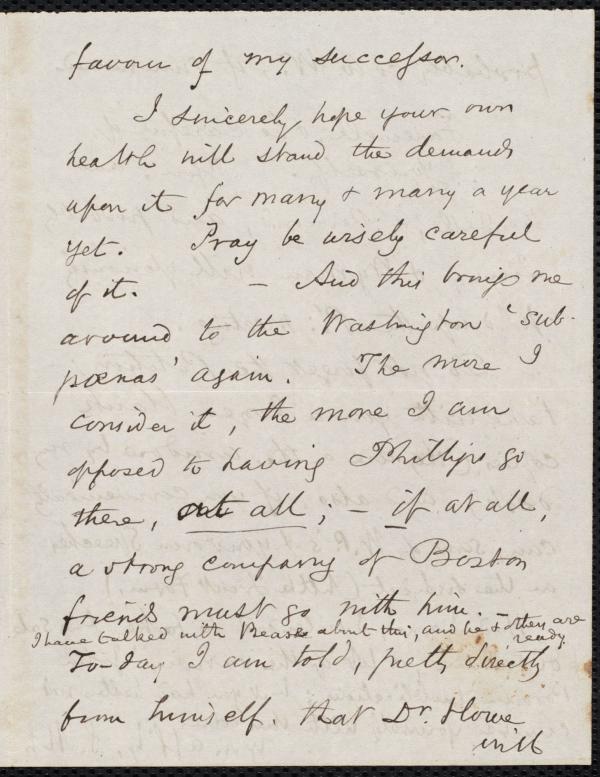 favour of my successor.
I sincerely hope your own
health will stand the demands
upon it for many & many a year
yet. Pray be wisely careful
of it. — And this brings me
around to the Washington 'sub-
pœnas' again. The more I
consider it, the more I am
opposed to having Phillips go
there, at all; — if at all,
a strong company of Boston
friends must go with him. —
I have talked with about this, and he & others are
ready
To-day I am told, pretty directly
from himself, that Dr. Howe
will